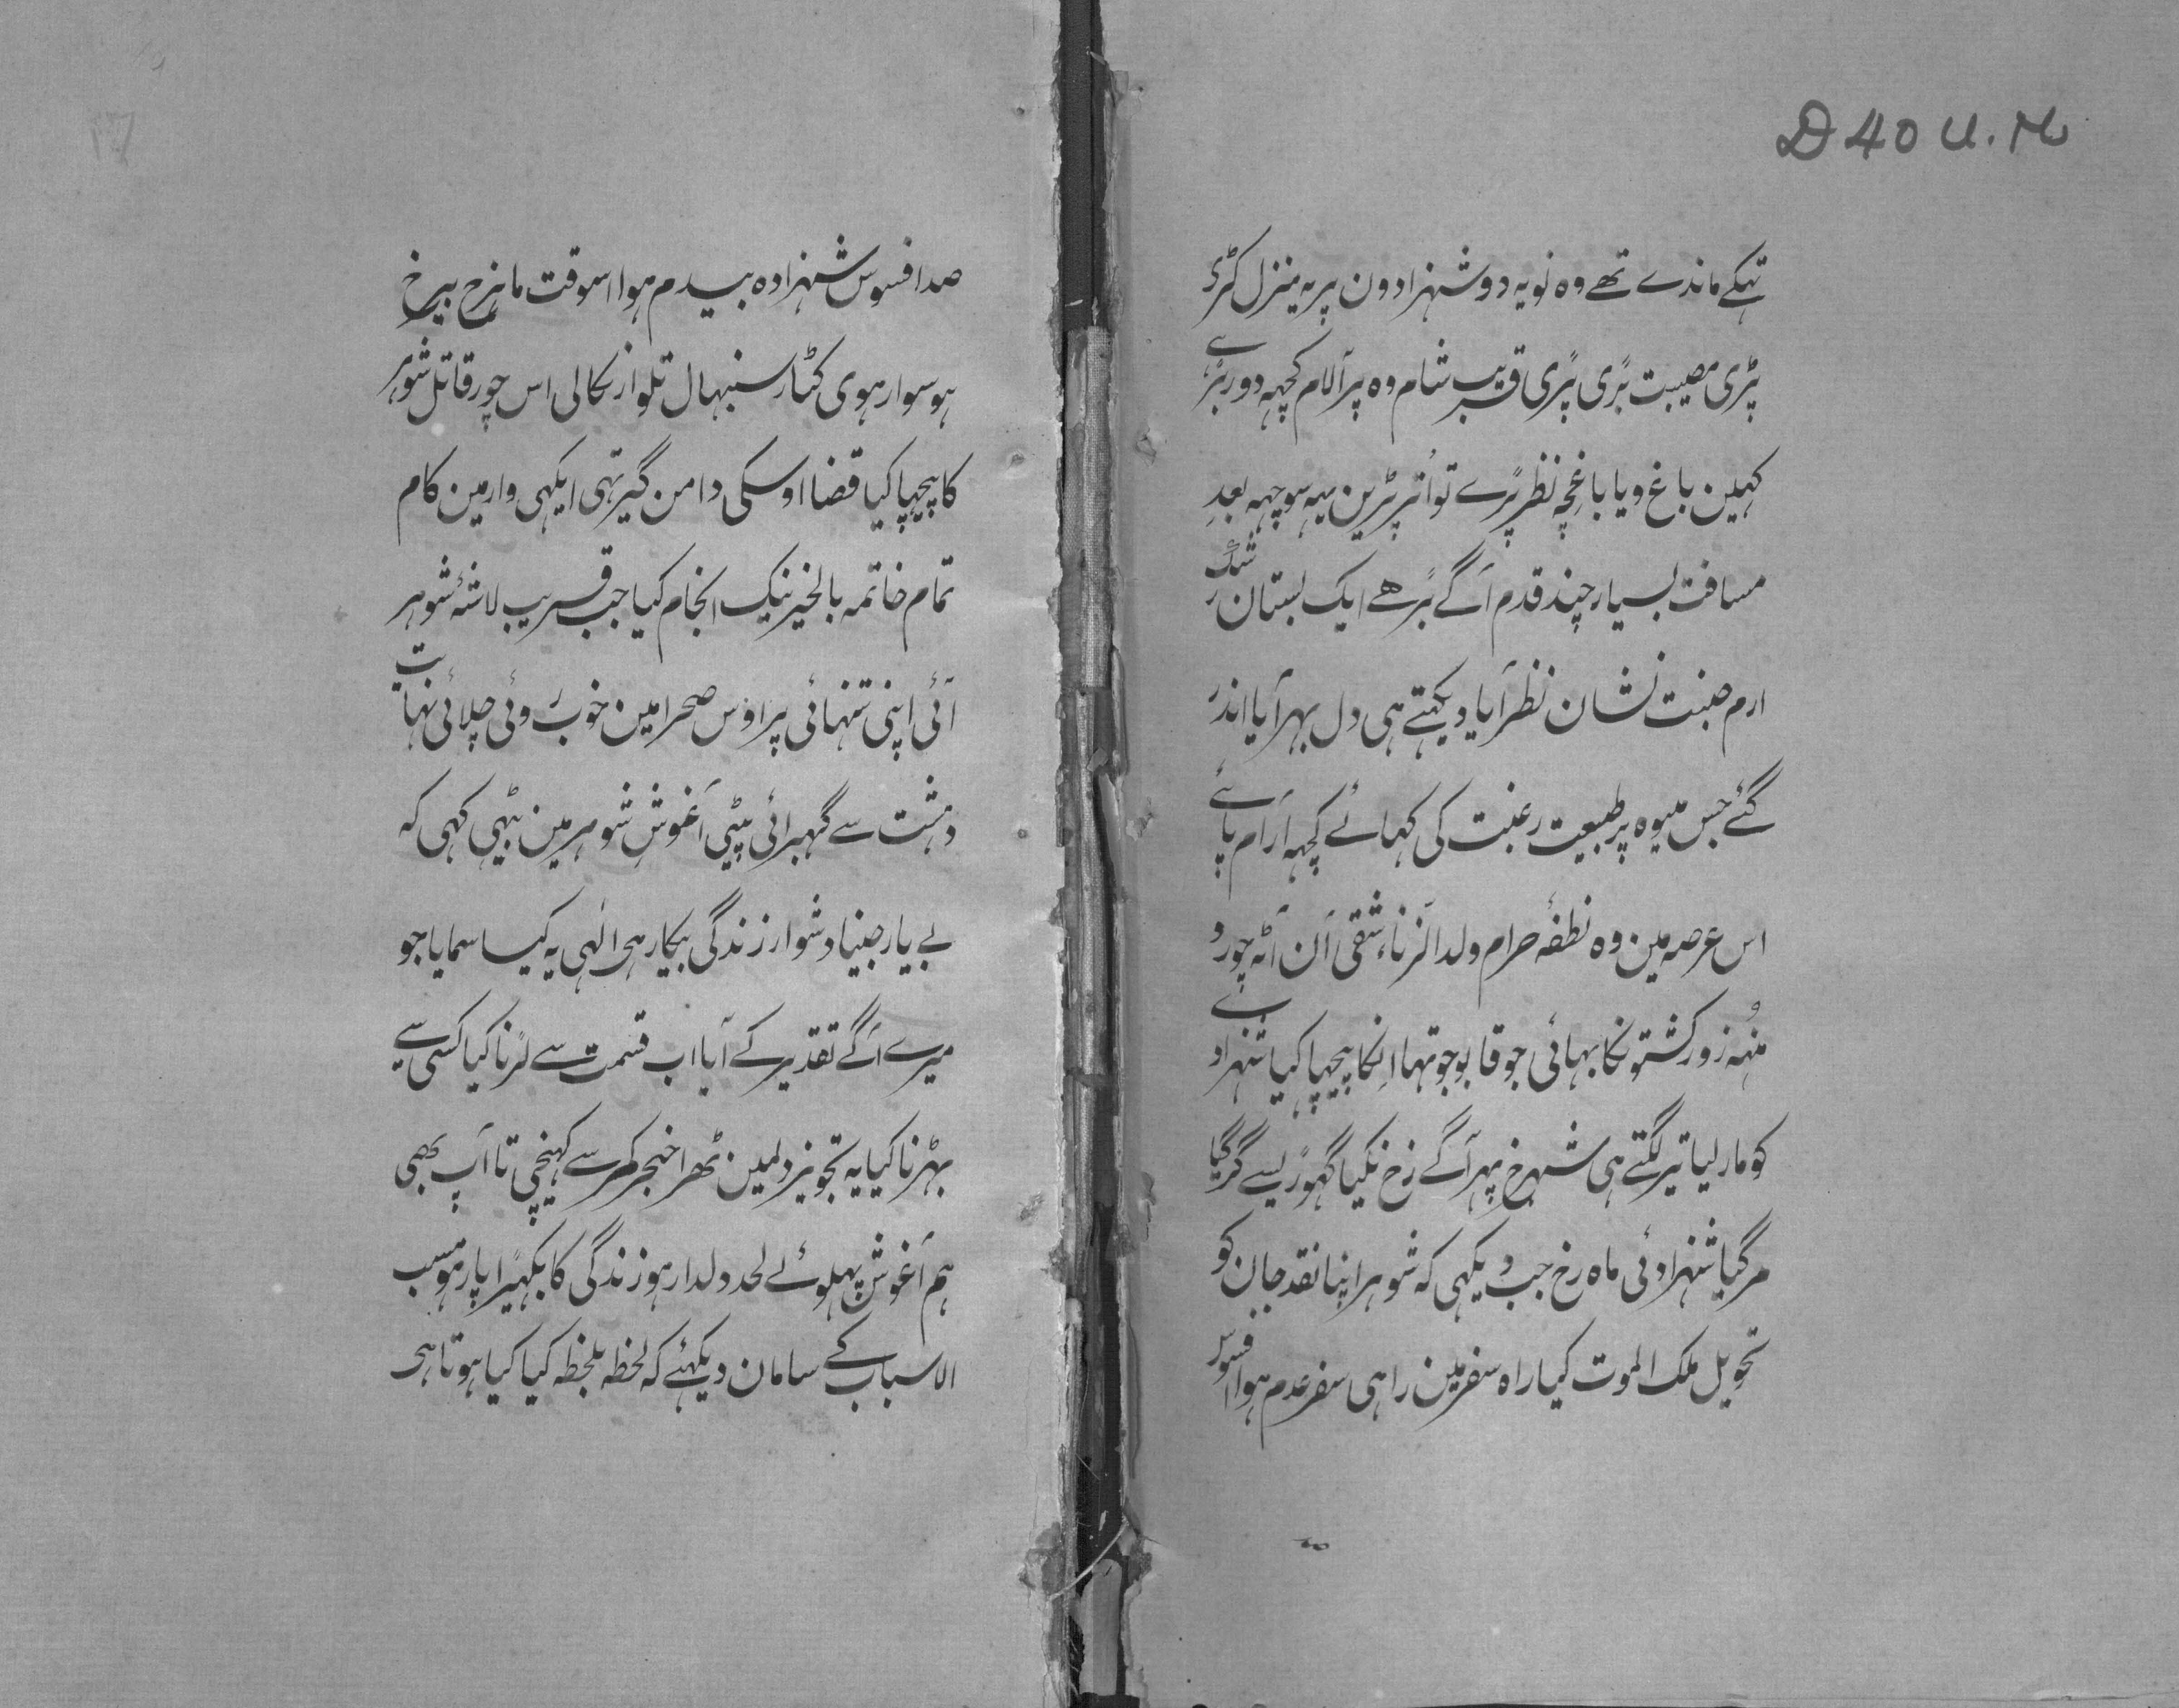 D 40 U. M
تہکے ماندے تھے وہ نو یہ دو شہزادون پر یہ منزل کڑی
پڑی مصیبت بڑی پڑی قریب شام وہ پر آلام کچہہ دور بڑہے
کہین باغ و یا باغچہ نظر پڑے تو اُتر پڑین یہہ سوچہہ بعدِ
مسافت بسیار چند قدم آگے بڑھے ایک بستان رشک
ارم جنت نشان نظر آیا دیکہتے ہی دل بہر آیا اندر
گئے جس میوہ پر طبیعت رغبت کی کہائے کچہہ آرام پائے
اس عرصہ مین وہ نطفۂ حرام ولد الزناء شقی اَن آٹہ چورو
منُہہ زور کشتونکا بہائی جو قابو جو تہا اِنکا پیچہا کیا شہزادے
کو مار لیا تیر لگتے ہی شہرخ پہر آگے رخ نکیا گہوڑیسے گر گیا
مر گیا شہزادئی ماہ رخ جب دیکہی کہ شوہر اپنا نقد جان کو
تحویل ملک الموت کیا راہ سفر مین راہی سفر عدم ہوا افسوس
17
صد افسوس شہزادہ بیدم ہوا اسوقت مانند مریخ
ہو سوار ہوی کٹار سنبہال تلوار نکالی اس چور قاتل شوہر
کا پیچہا کیا قضا اوسکی دامن گیر تہی ایکہی وار مین کام
تمام خاتمہ بالخیر نیک انجام کیا جب قریب لاشۂ شوہر
آئی اپنی تنہائی پر اوس صحرا مین خوب روئی چلائی نہایت
دہشت سے گہبرائی بیٹہی آغوش شوہر مین بیٹہی کہی کہ
بے یار جینا دشوار زندگی بیکار ہی الٰہی یہ کیسا سمایا جو
میرے آگے تقدیر کے آیا اب قسمت سے لڑنا کیا کسی سے
بہڑنا کیا یہ تجویز دلمین ٹھرا خنجر کمر سے کہینچی تا آپ بھی
ہم آغوش پہلوئے لحد دلدار ہو زندگی کا بکہیڑا پار ہو مسبب
الاسباب کے سامان دیکہئے کہ لحظہ بلحظہ کیا کیا ہوتا ہی